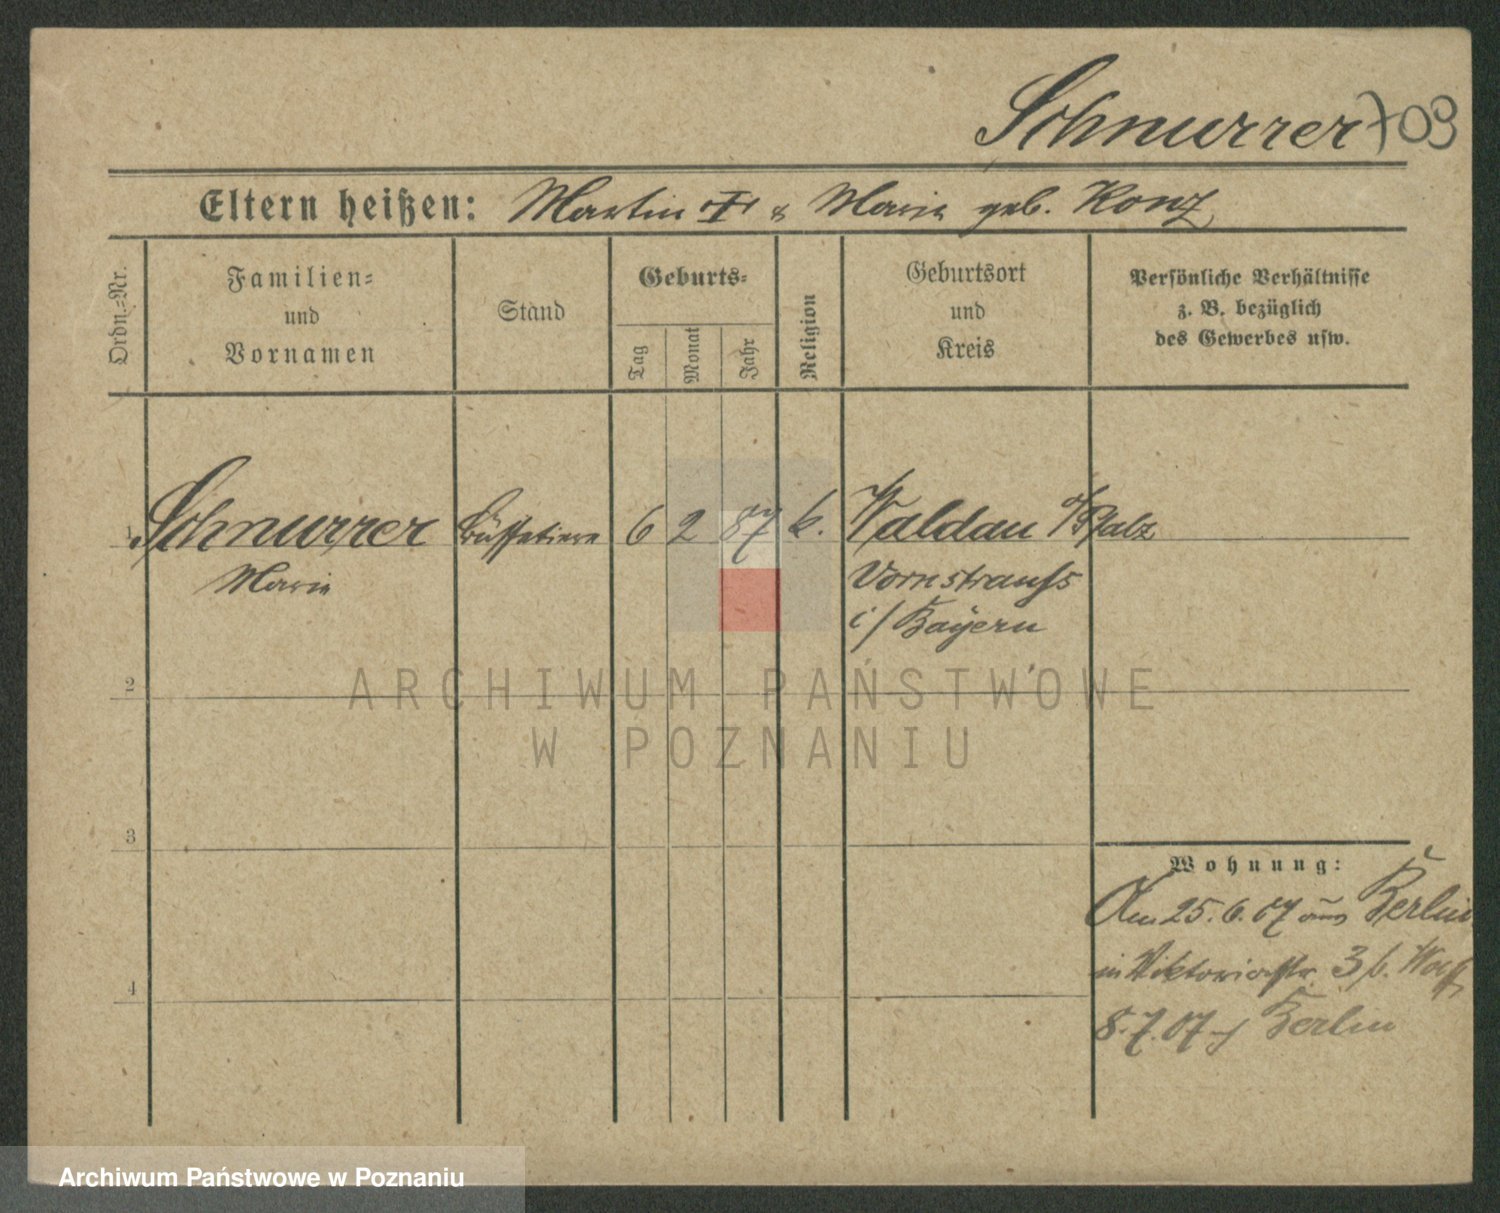 Schnurrer 709
Eltern heißen: Martin † & Marie geb. Konz
Ordn.-Nr.
Familien-
und
Vornamen
Stand
Geburts-
Tag
Monat
Jahr
Religion
Geburtsort
und
Kreis
Persönliche Verhältnisse
z. B. bezüglich
des Gewerbes usw.
1 Schnurrer Büffetiere 6 2 87 k. Waldau /Pfalz
Marie Vornstrauß
i/ Bayern
2
ARCHIWUM PAŃSTWOWE
W POZNANIU
3
Wohnung:
Am 25.6.07 aus Berlin
in Viktoriastr. 3 b.
4
8.7.07 Berlin
Archiwum Państwowe w Poznaniu